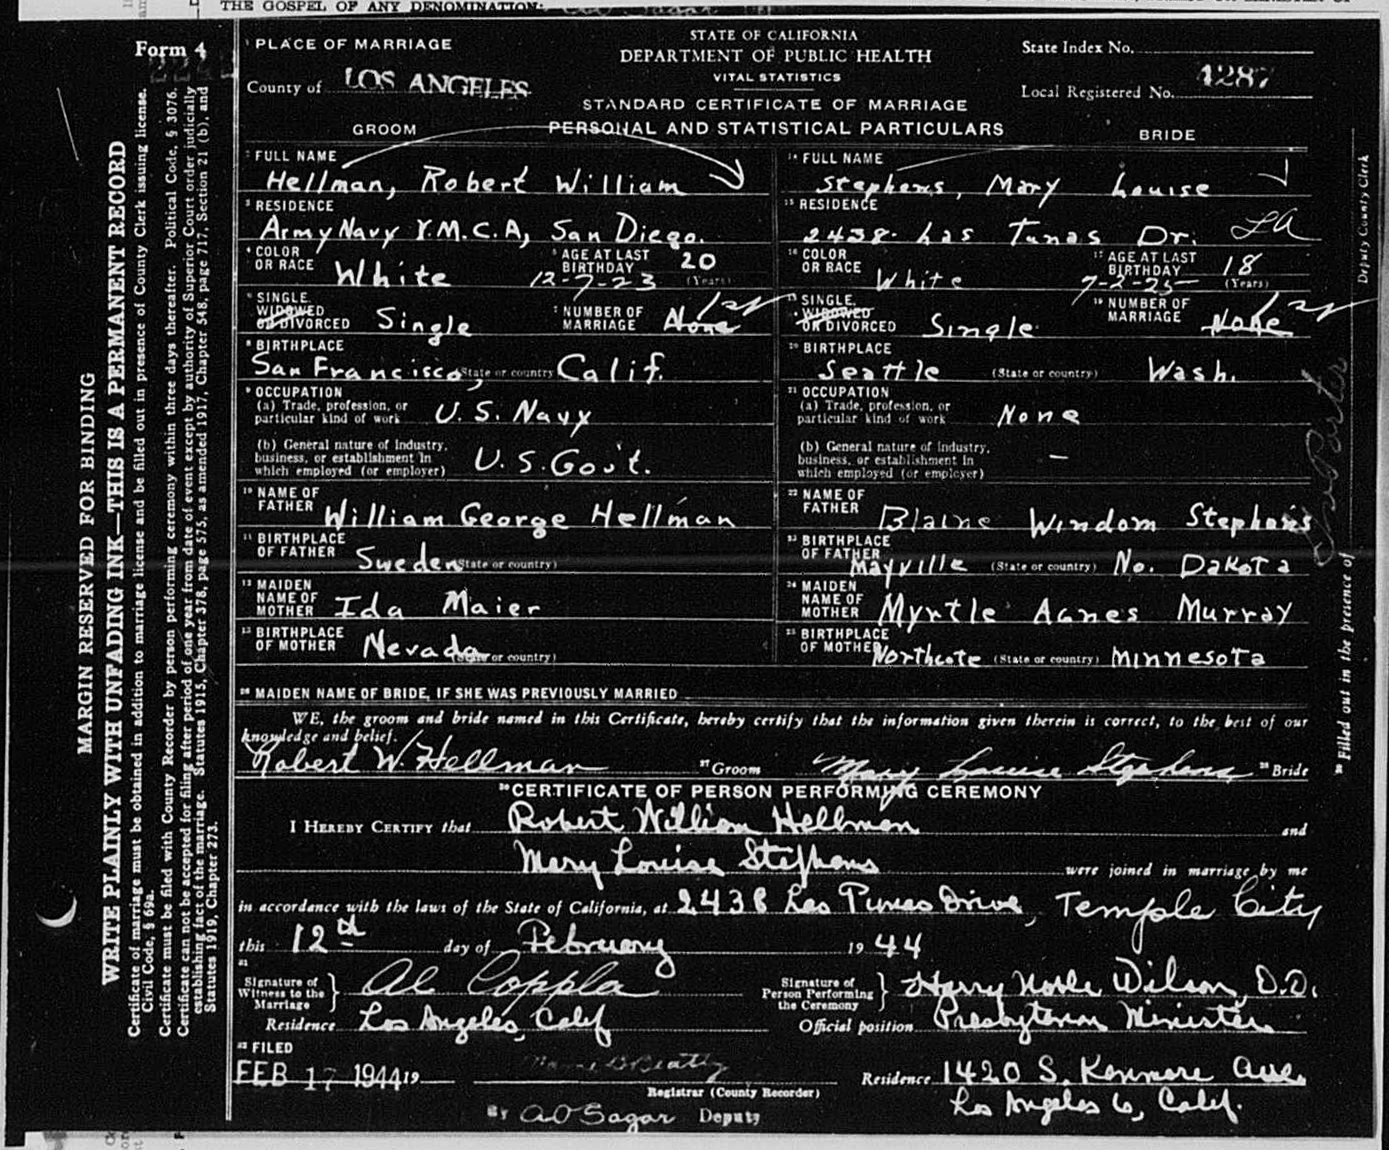 THE GOSPEL OF ANY DENOMINATION.
Form 4
MARGIN RESERVED FOR BINDING
WRITE PLAINLY WITH UNFADING INK—THIS IS A PERMANENT RECORD
Certificate of marriage must be obtained in addition to marriage license and be filled out in presence of County Clerk issuing license.
Civil Code, § 69a.
Certificate must be filed with County Recorder by person performing ceremony within three days thereafter. Political Code, § 3076.
Certificate can not be accepted for filing after period of one year from date of event except by authority of Superior Court order judicially
establishing fact of the marriage. Statutes 1915, Chapter 378, page 575, as amended 1917, Chapter 548, page 717, Section 21 (b), and
Statutes 1919, Chapter 273.
1 PLACE OF MARRIAGE
County of LOS ANGELES
STATE OF CALIFORNIA
DEPARTMENT OF PUBLIC HEALTH
VITAL STATISTICS
STANDARD CERTIFICATE OF MARRIAGE
State Index No.
Local Registered No. 4287
PERSONAL AND STATISTICAL PARTICULARS
GROOM
2 FULL NAME
Hellman, Robert William
3 RESIDENCE
Army Navy Y.M.C.A, San Diego.
4 COLOR OR RACE White
5 AGE AT LAST BIRTHDAY 20 (Years)
12-7-23
6 SINGLE, WIDOWED OR DIVORCED Single
7 NUMBER OF MARRIAGE None 1st
8 BIRTHPLACE
San Francisco, (State or country) Calif.
9 OCCUPATION
(a) Trade, profession, or particular kind of work U.S. Navy
(b) General nature of industry, business, or establishment in which employed (or employer) U.S. Gov't.
10 NAME OF FATHER William George Hellman
11 BIRTHPLACE OF FATHER Sweden (State or country)
12 MAIDEN NAME OF MOTHER Ida Maier
13 BIRTHPLACE OF MOTHER Nevada (State or country)
BRIDE
14 FULL NAME
Stephens, Mary Louise
15 RESIDENCE
2438 Las Tunas Dr. LA
16 COLOR OR RACE White
17 AGE AT LAST BIRTHDAY 18 (Years)
7-2-25
18 SINGLE, WIDOWED OR DIVORCED Single
19 NUMBER OF MARRIAGE None 1st
20 BIRTHPLACE
Seattle (State or country) Wash.
21 OCCUPATION
(a) Trade, profession, or particular kind of work None
(b) General nature of industry, business, or establishment in which employed (or employer) –
22 NAME OF FATHER Blaine Windom Stephens
23 BIRTHPLACE OF FATHER Mayville (State or country) No. Dakota
24 MAIDEN NAME OF MOTHER Myrtle Agnes Murray
25 BIRTHPLACE OF MOTHER Northcote (State or country) Minnesota
26 MAIDEN NAME OF BRIDE, IF SHE WAS PREVIOUSLY MARRIED
WE, the groom and bride named in this Certificate, hereby certify that the information given therein is correct, to the best of our
knowledge and belief.
Robert W. Hellman 27 Groom Mary Louise Stephens 28 Bride
29 Filled out in the presence of Porter Deputy County Clerk
30 CERTIFICATE OF PERSON PERFORMING CEREMONY
I HEREBY CERTIFY that Robert William Hellman and
Mary Louise Stephens were joined in marriage by me
in accordance with the laws of the State of California, at 2438 Las Tunas Drive, Temple City
this 12th day of February 1944
31
Signature of Witness to the Marriage } Al Coppla
Residence Los Angeles, Calif
Signature of Person Performing the Ceremony } Harry Noble Wilson, D.D.
Official position Presbyterian Minister
32 FILED
FEB 17 1944 19
Mame B Beatty
Registrar (County Recorder)
By A O Sagar Deputy
Residence 1420 S. Kenmore Ave.
Los Angeles 6, Calif.